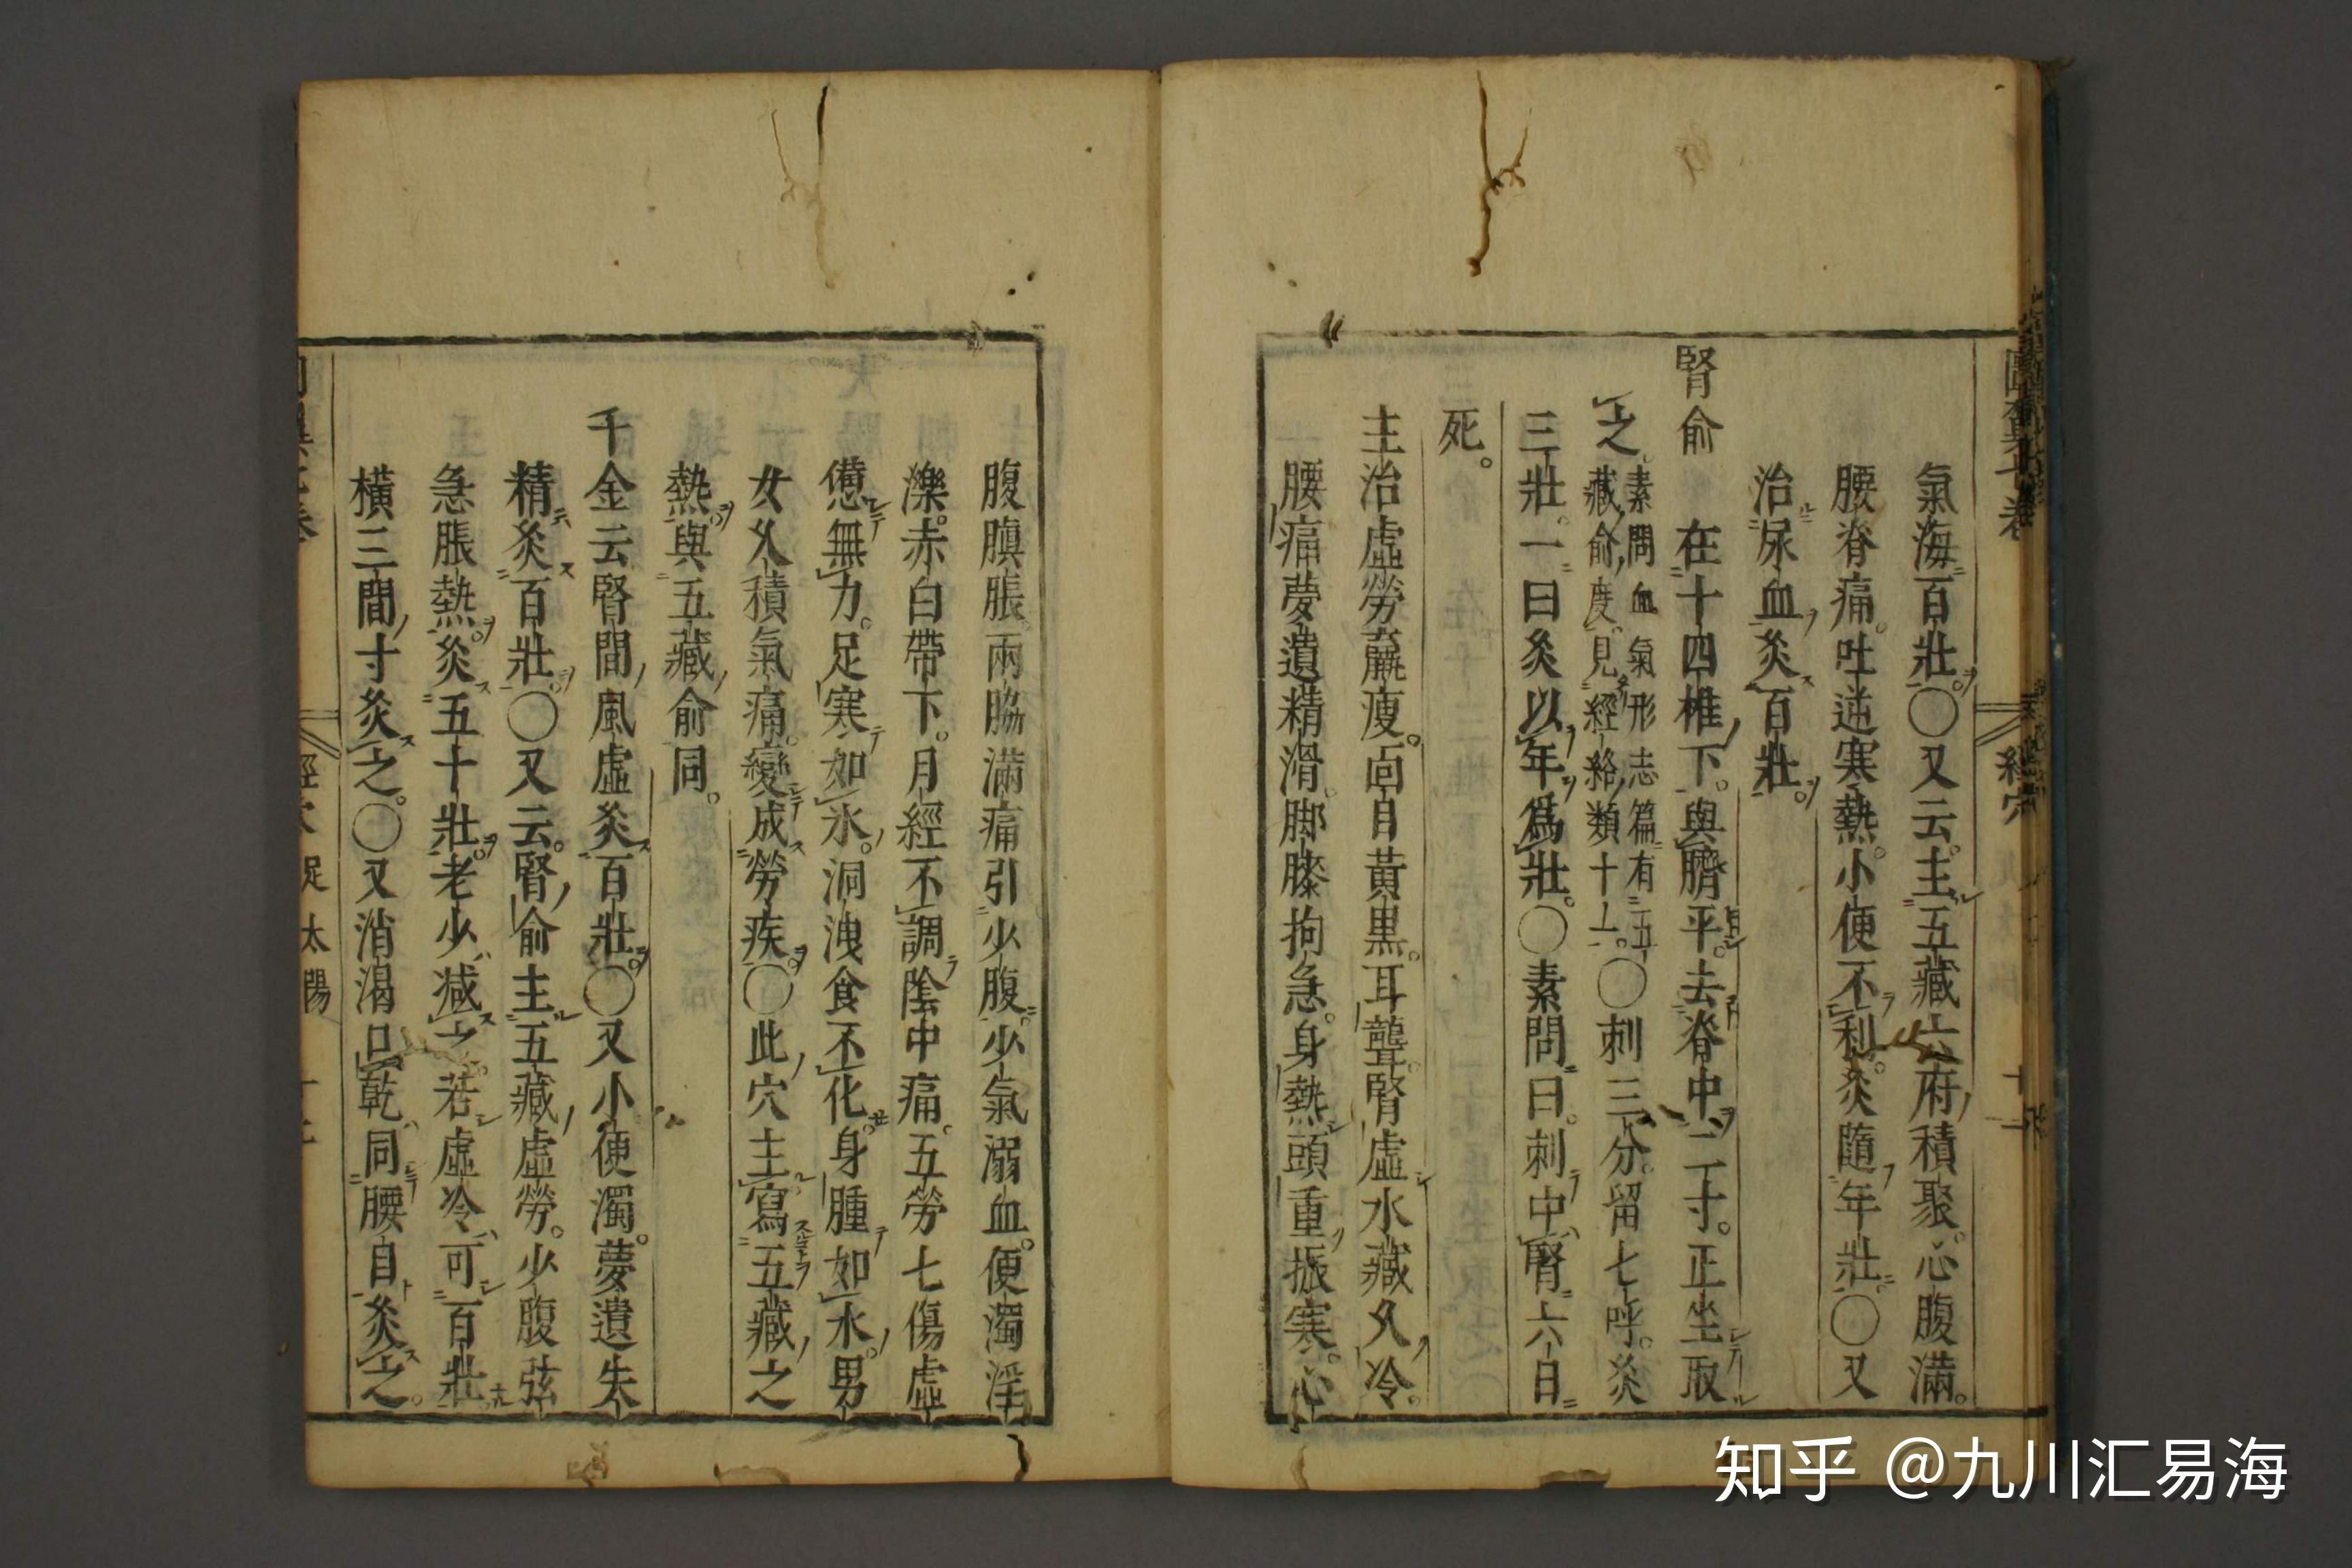 氣海百壯○又云主五藏六府積聚心腹滿。
腰脊痛。吐逆寒熱。小便不利。灸隨年壯○又
治尿血灸百壯。
腎俞 在十四椎下。與臍平。去脊中二寸。正坐取
之。素問血氣形志篇有五藏俞度見經絡類十一。○刺三分。留七呼。灸
三壯。一曰灸以年爲壯。○素問曰。刺中腎六日
死。
主治虛勞羸瘦。面目黃黑。耳聾。腎虛水藏久冷。
腰痛夢遺精滑。脚膝拘急。身熱頭重振寒。心
腹䐜脹。兩脇滿痛引少腹。少氣溺血。便濁淫
濼。赤白帶下。月經不調陰中痛。五勞七傷虛
憊無力。足寒如氷。洞洩食不化。身腫如水。男
女久積氣痛。變成勞疾。○此穴主寫五藏之
熱。與五藏俞同。
千金云腎間風虛灸百壯。○又小便濁。夢遺失
精灸百壯。○又云。腎俞主五藏虛勞。少腹弦
急脹熱。灸五十壯。老少減之若虛冷可百壯
橫三間寸灸之。○又消渴口乾同腰目灸之。
經穴 足太陽
知乎 @九川汇易海